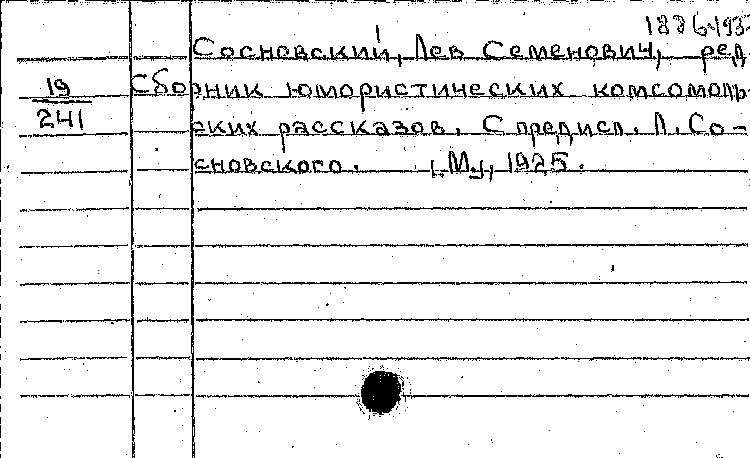 1886-193
Сосновский, Лев Семенович, ред.
19 Сборник юмористических комсомоль-
241 ских рассказов. С предисл. Л. Со-
сновского. [М.], 1925.